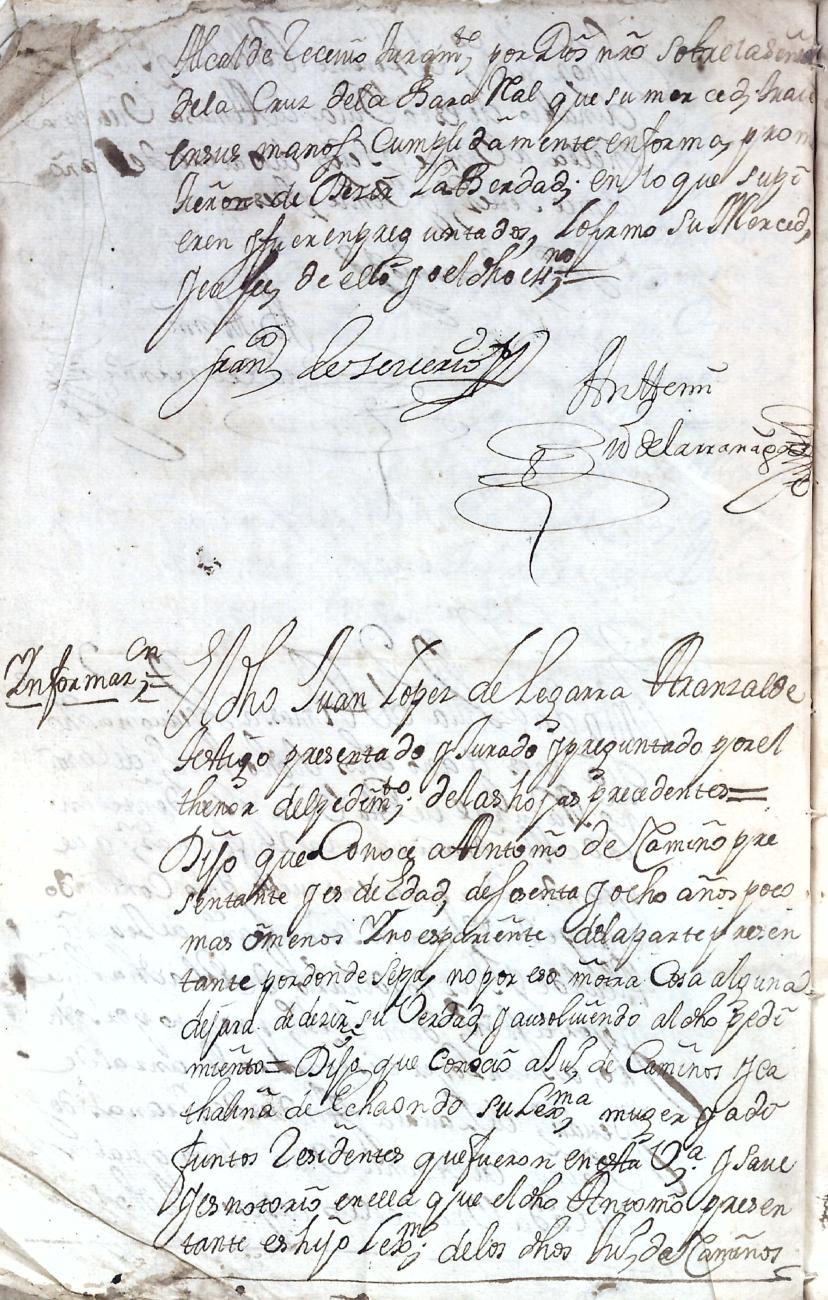 Alcalde Recevio Juram.to por Dios nro sobre la señal
de la Cruz de la Bara Rl al que su merced, trai
en sus manos Cumplidamente en forma, prom
tieron de Decir La Berdad, en lo que supi
eren y fueren preguntados, Lo firmo su Merced,
y en fee, de ello yo el dho es.no =
Fran.co de
Ante mi
de Larranaga
Informaz.on = El dho Juan Lopez de Legarra Aranzalde
testigo presentado y Jurado y preguntado por el
thenor del pedim.to, de las hojas precedentes =
Dijo que Conoce a Antonio de Camiño pre
sentante y es de Edad, de sesenta y ocho años poco
mas o menos Y no es pariente de la parte presen
tante por donde sepa, no por eso mõtra Cosa alguna
dejara de dezir su Verdad, y absolviendo al dho pedi
miento = Dijo, que conocio a Ju.o de Camiños y ca
thalina de Echaondo su Lex.ma muger y ado
Juntos Residentes que fueron en esta V.a y save
y es notorio en ella que el dho Antonio presen
tante es hijo Lex.mo de los dhos Ju.o de Camiños